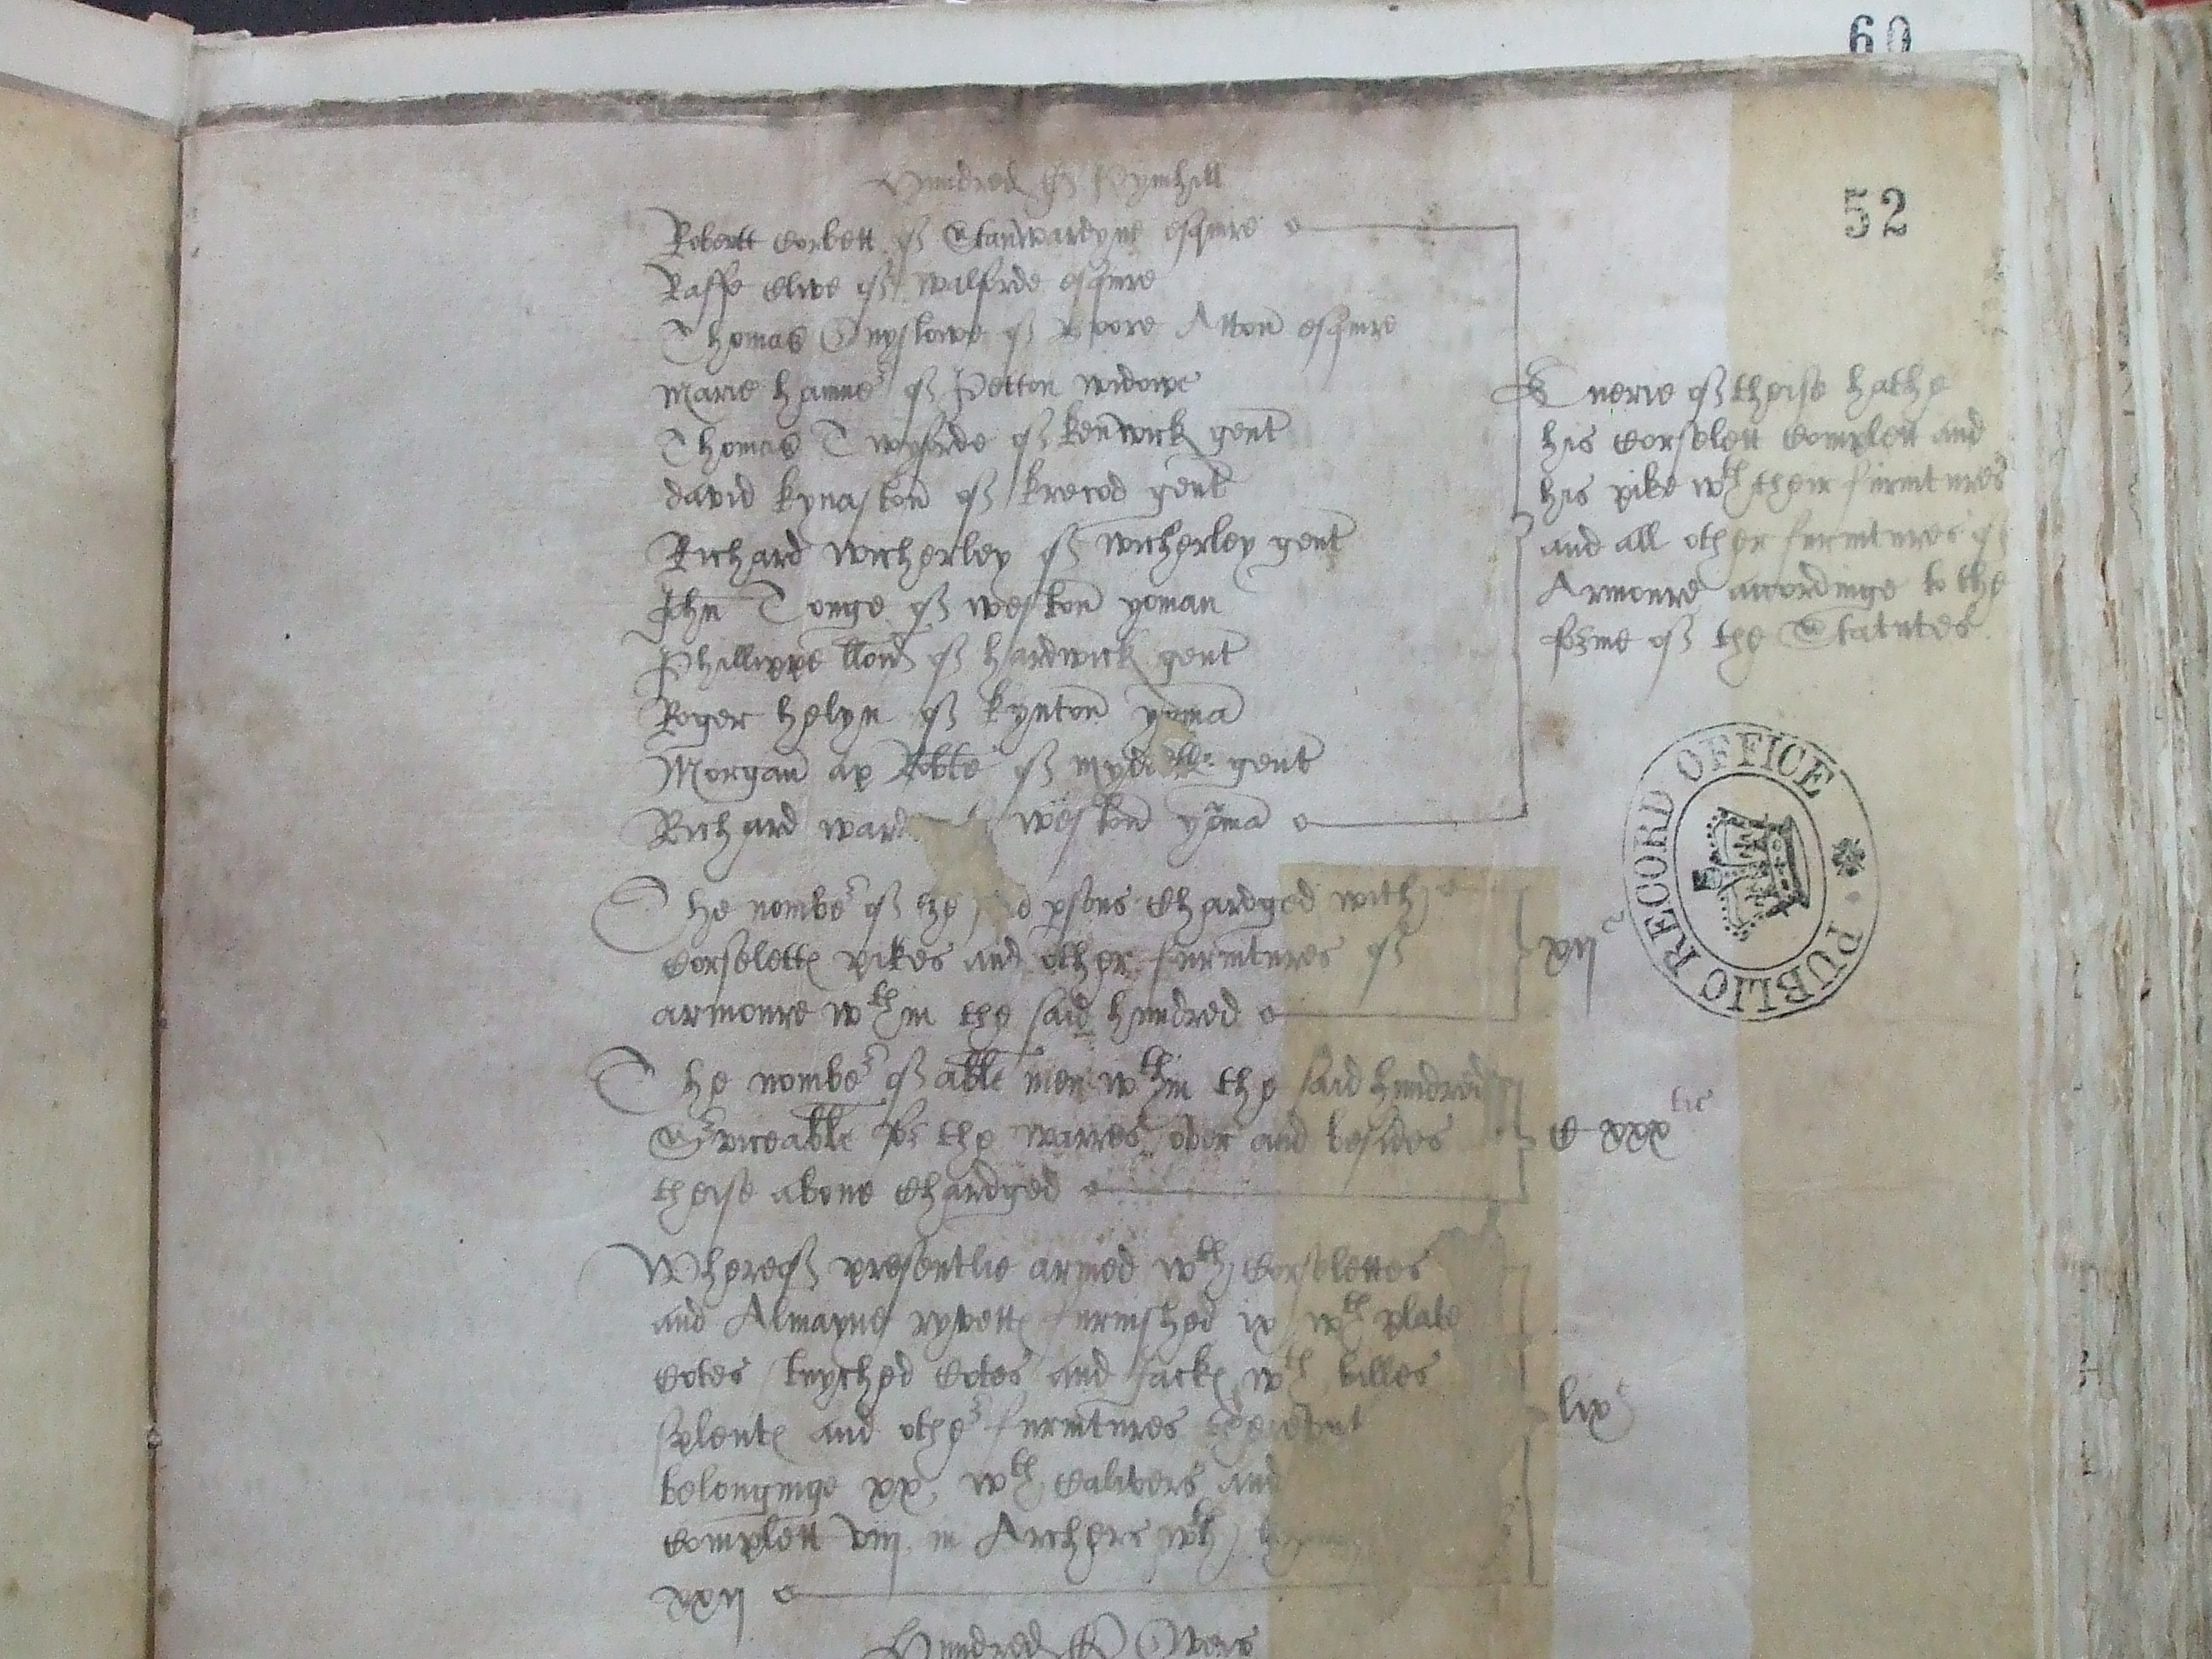 60
52
Hundred of Pymhill
Robertt Corbett of Stanwardyne esquire
Raffe Clive of Walforde esquire
Thomas Onyslowe of Boore Atton esquire
Marie hanmer of Petton widowe
Thomas Twyforde of kenwick gent
david kynaston of krecod gent
Richard Wicherley of Wicherley gent
John Tonge of weston yoman
Phillippe lloid of hardwick gent
Roger helyn of kynton yoma
Morgan ap Robte of gent
Richard ward weston yoma
Euerie of theise hathe
his Corselett Complett and
his pike wth their furnitures
and all other furnitures of
Armoure accordinge to the
forme of the Statutes
The nomber of the psons Chardged with
Corselettes pikes and other furnitures of
armoure wthin the said hundred
xij
The nomber of able men wthin the said hundred
Serviceable for the warres over and besides
theise above Chardged
C xxxtie
Whereof presentlie armed wth Corselettes
and Almayne ryvettes furnished ix wth plate
Cotes Cotes and Jackes wth billes
splentes and other furnitures
belonginge xx, wth Calivers and
Complett viij in Archers wth
xxij
lix
Hundred of
PUBLIC RECORD OFFICE